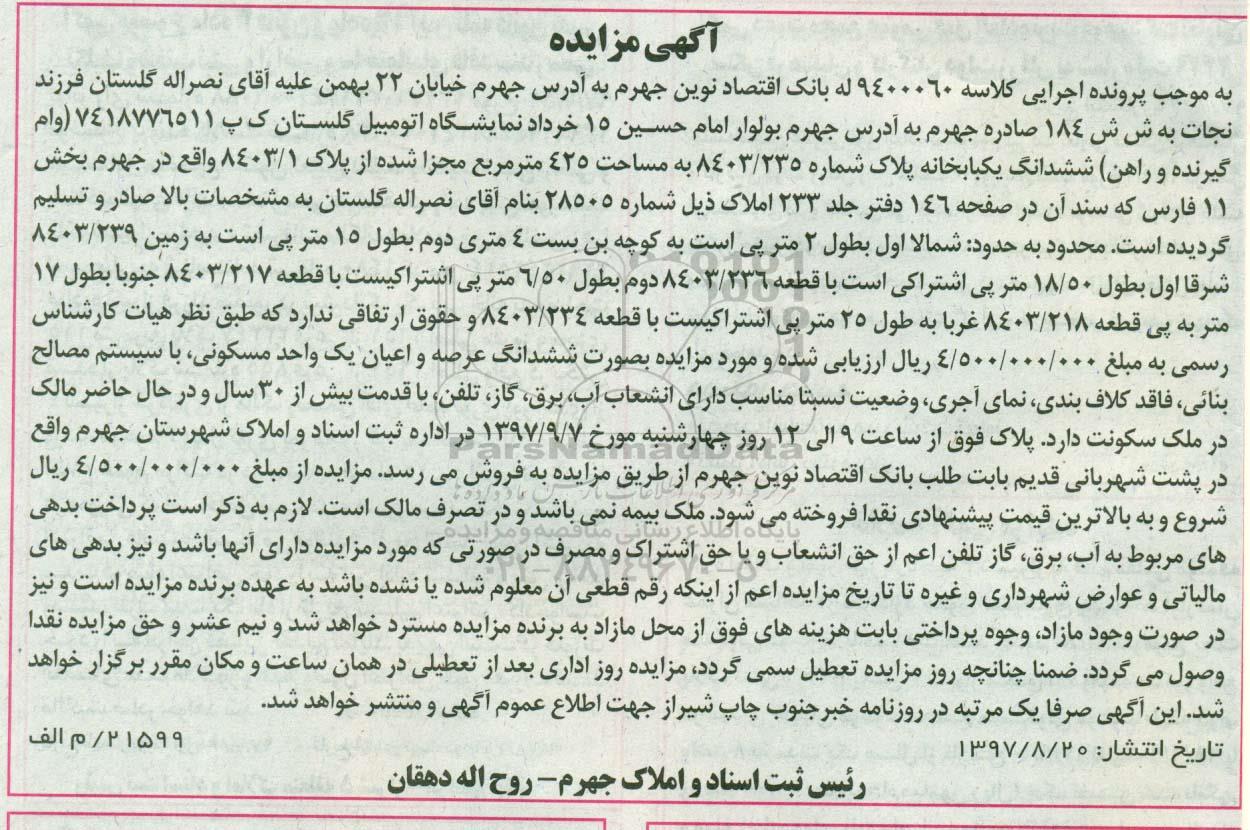 آگهی مزایده
به موجب پرونده اجرایی کلاسه ۹۴۰۰۰۶۰ له بانک اقتصاد نوین جهرم به آدرس جهرم خیابان ۲۲ بهمن علیه آقای نصراله گلستان فرزند
نجات به ش ش ۱۸۴ صادره جهرم به آدرس جهرم بولوار امام حسین ۱۵ خرداد نمایشگاه اتومبیل گلستان ک پ ۷۴۱۸۷۷۶۵۱۱ (وام
گیرنده و راهن) ششدانگ یکبابخانه پلاک شماره ۸۴۰۳/۲۳۵ به مساحت ۴۲۵ مترمربع مجزا شده از پلاک ۸۴۰۳/۱ واقع در جهرم بخش
۱۱ فارس که سند آن در صفحه ۱۴۶ دفتر جلد ۲۳۳ املاک ذیل شماره ۲۸۵۰۵ بنام آقای نصراله گلستان به مشخصات بالا صادر و تسلیم
گردیده است. محدود به حدود: شمالا اول بطول ۲ متر پی است به کوچه بن بست ۴ متری دوم بطول ۱۵ متر پی است به زمین ۸۴۰۳/۲۳۹
شرقا اول بطول ۱۸/۵۰ متر پی اشتراکی است با قطعه ۸۴۰۳/۲۳۶ دوم بطول ۶/۵۰ متر پی اشتراکیست با قطعه ۸۴۰۳/۲۱۷ جنوبا بطول ۱۷
متر به پی قطعه ۸۴۰۳/۲۱۸ غربا به طول ۲۵ متر پی اشتراکیست با قطعه ۸۴۰۳/۲۳۴ و حقوق ارتفاقی ندارد که طبق نظر هیات کارشناس
رسمی به مبلغ ۴/۵۰۰/۰۰۰/۰۰۰ ریال ارزیابی شده و مورد مزایده بصورت ششدانگ عرصه و اعیان یک واحد مسکونی، با سیستم مصالح
بنائی، فاقد کلاف بندی، نمای آجری، وضعیت نسبتا مناسب دارای انشعاب آب، برق، گاز، تلفن، با قدمت بیش از ۳۰ سال و در حال حاضر مالک
در ملک سکونت دارد. پلاک فوق از ساعت ۹ الی ۱۲ روز چهارشنبه مورخ ۱۳۹۷/۹/۷ در اداره ثبت اسناد و املاک شهرستان جهرم واقع
در پشت شهربانی قدیم بابت طلب بانک اقتصاد نوین جهرم از طریق مزایده به فروش می رسد. مزایده از مبلغ ۴/۵۰۰/۰۰۰/۰۰۰ ریال
شروع و به بالاترین قیمت پیشنهادی نقدا فروخته می شود. ملک بیمه نمی باشد و در تصرف مالک است. لازم به ذکر است پرداخت بدهی
های مربوط به آب، برق، گاز تلفن اعم از حق انشعاب و یا حق اشتراک و مصرف در صورتی که مورد مزایده دارای آنها باشد و نیز بدهی های
مالیاتی و عوارض شهرداری و غیره تا تاریخ مزایده اعم از اینکه رقم قطعی آن معلوم شده یا نشده باشد به عهده برنده مزایده است و نیز
در صورت وجود مازاد، وجوه پرداختی بابت هزینه های فوق از محل مازاد به برنده مزایده مسترد خواهد شد و نیم عشر و حق مزایده نقدا
وصول می گردد. ضمنا چنانچه روز مزایده تعطیل سمی گردد، مزایده روز اداری بعد از تعطیلی در همان ساعت و مکان مقرر برگزار خواهد
شد. این آگهی صرفا یک مرتبه در روزنامه خبرجنوب چاپ شیراز جهت اطلاع عموم آگهی و منتشر خواهد شد.
تاریخ انتشار: ۱۳۹۷/۸/۲۰
۲۱۵۹۹/ م الف
رئیس ثبت اسناد و املاک جهرم - روح اله دهقان
ParsNamadData
پایگاه اطلاع رسانی مناقصه و مزایده
۰۲۱-۸۸۳۴۹۶۷۰-۵